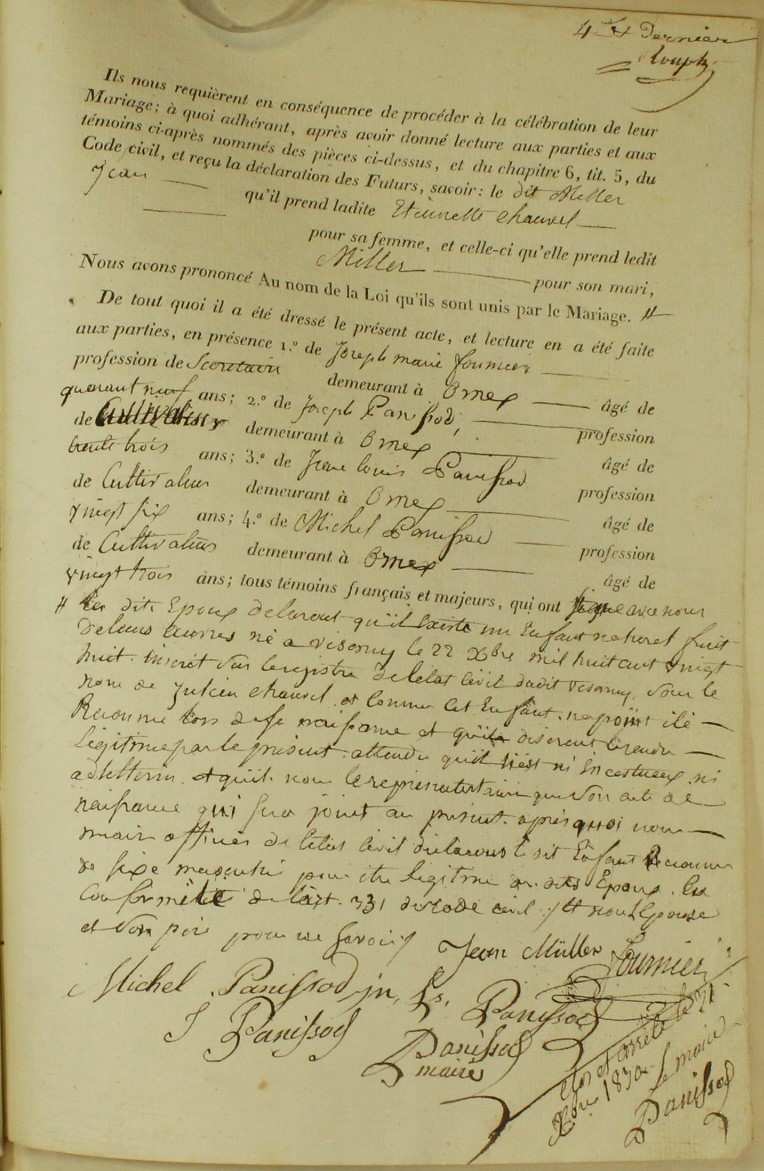 4 et Dernier
Ils nous requièrent en conséquence de procéder à la célébration de leur
Mariage; à quoi adhérant, après avoir donné lecture aux parties et aux
témoins ci-après nommés des pièces ci-dessus, et du chapitre 6, tit. 5, du
Code civil, et reçu la déclaration des Futurs, savoir: le dit Miller
Jean
qu'il prend ladite Etiennette Chauvel
pour sa femme, et celle-ci qu'elle prend ledit
Miller pour son mari,
Nous avons prononcé Au nom de la Loi qu'ils sont unis par le Mariage. #
De tout quoi il a été dressé le présent acte, et lecture en a été faite
aux parties, en présence 1.° de Joseph marie fournier
profession de Secretaire demeurant à Ornex âgé de
quarant neuf ans; 2.° de Joseph Panissod, profession
de Cultivateur demeurant à Ornex âgé de
trente trois ans; 3.° de Jean louis Panissod profession
de Cultivateur demeurant à Ornex âgé de
vingt six ans; 4.° de Michel Panissod profession
de Cultivateur demeurant à Ornex âgé de
vingt trois ans; tous témoins français et majeurs, qui ont signé avec nous
# les dits Epoux declarent qu'il existe un Enfant naturel fruit
de leurs né a le 22 Xbre mil huit cent vingt
huit. inscrit sur le registre de l'etat civil dudit sous le
nom de Julien Chauvel. et comme cet Enfant. na point été
Reconnu lors de sa naissance et qu'ils desirent le rendre
légitime par le présent. attendu qu'il n'est ni incestueux. ni
adulterin. et qu'il nous de son acte de
naissance qui sera joint au présent. après quoi nous
maire officier de l'etat civil declarons le dit Enfant Reconnu
du sexe masculin pour être légitime des dits Epoux. En
conformité de l'art. 331 du code civil. et non l'Epouse
et son père pour ne savoir
Jean Müller Fournier
Michel Panissod jn, Ls. Panissod
J Panissod
Panissod
maire
clos et arrêté le 31
Xbre 1830
le maire
Panissod